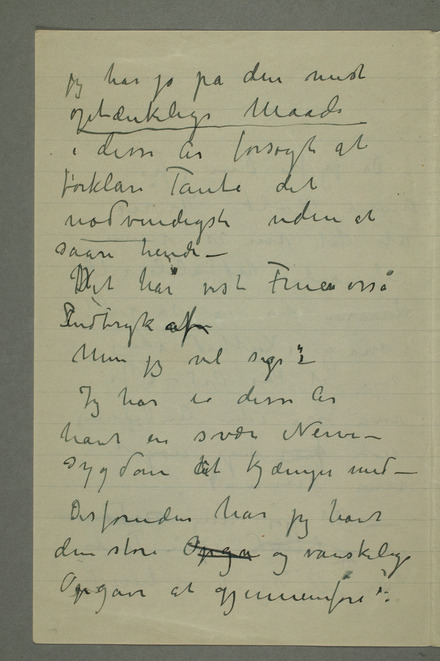 Jeg har jo på den mest
optænkelige Maade
i disse År forsøgt at
forklare Tante det
nødvendigste uden at
saare hende –
Det har vist Fruen også
Indtryk af
Men jeg vil sige:
Jeg har i disse År
havt en svær Nerve–
sygdom at kjæmpe med –
Desforuden har jeg havt
den store Opga og vanskelige
Opgave at gjennemføre: